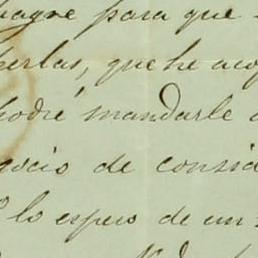 hague para que
perlas, que he acep
podré mandarle
gocio de consid
lo espero de un